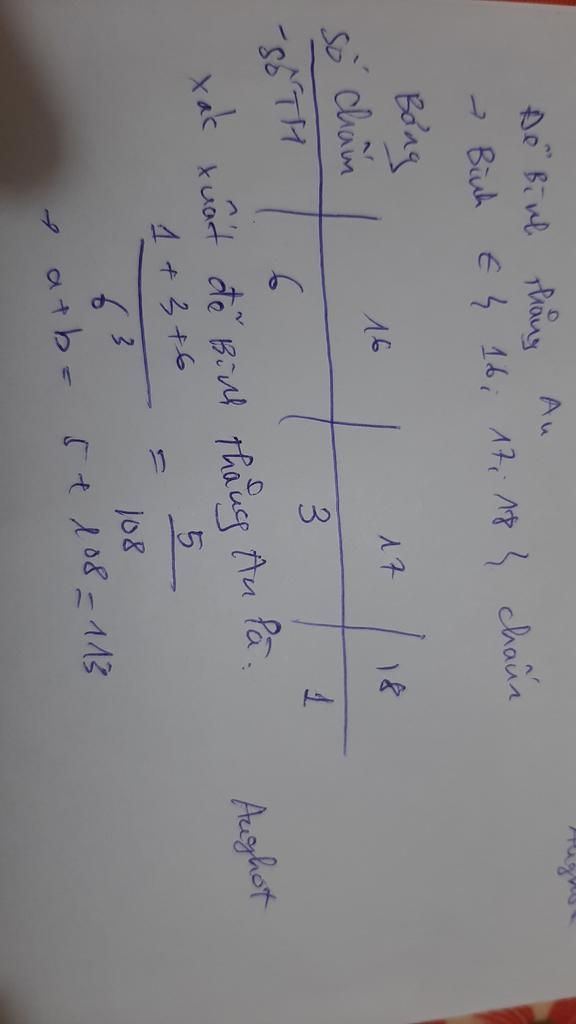 Để Bình thắng An
→ Bình ∈ { 16; 17; 18 } chấm
Bảng
số chấm | 16 | 17 | 18
số TH | 6 | 3 | 1
xác xuất để Bình thắng An là:
1 + 3 + 6 / 6³ = 5 / 108
→ a + b = 5 + 108 = 113